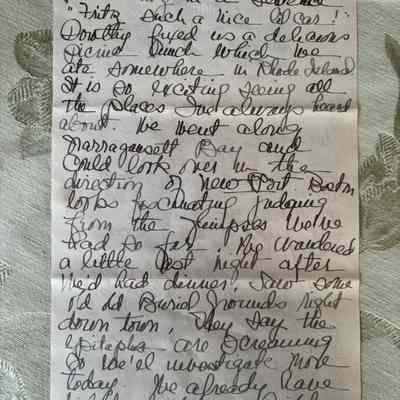 "Fritz such a nice old car!"
Dorothy fixed us a delicious
picnic lunch which we
ate somewhere in Rhode Island.
It is so exciting seeing all
the places I've always heard
about. We went along
Narragansett Bay and
could look over in the
direction of New Port. Boston
looks fascinating judging
from the glimpses we've
had so far. We wandered
a little last night after
we'd had dinner, saw some
old old Burial Grounds right
down town. They say the
epitaphs are screaming
so we'el investigate more
today. I've already have